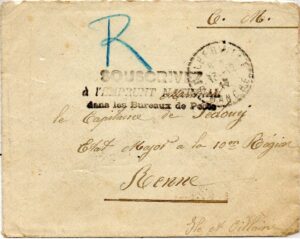 F. M.
R
SOUSCRIVEZ
à l'EMPRUNT NATIONAL
dans les Bureaux de Poste
le Capitaine de
Etat Major à la 10e Région
Renne
Ile et Villain